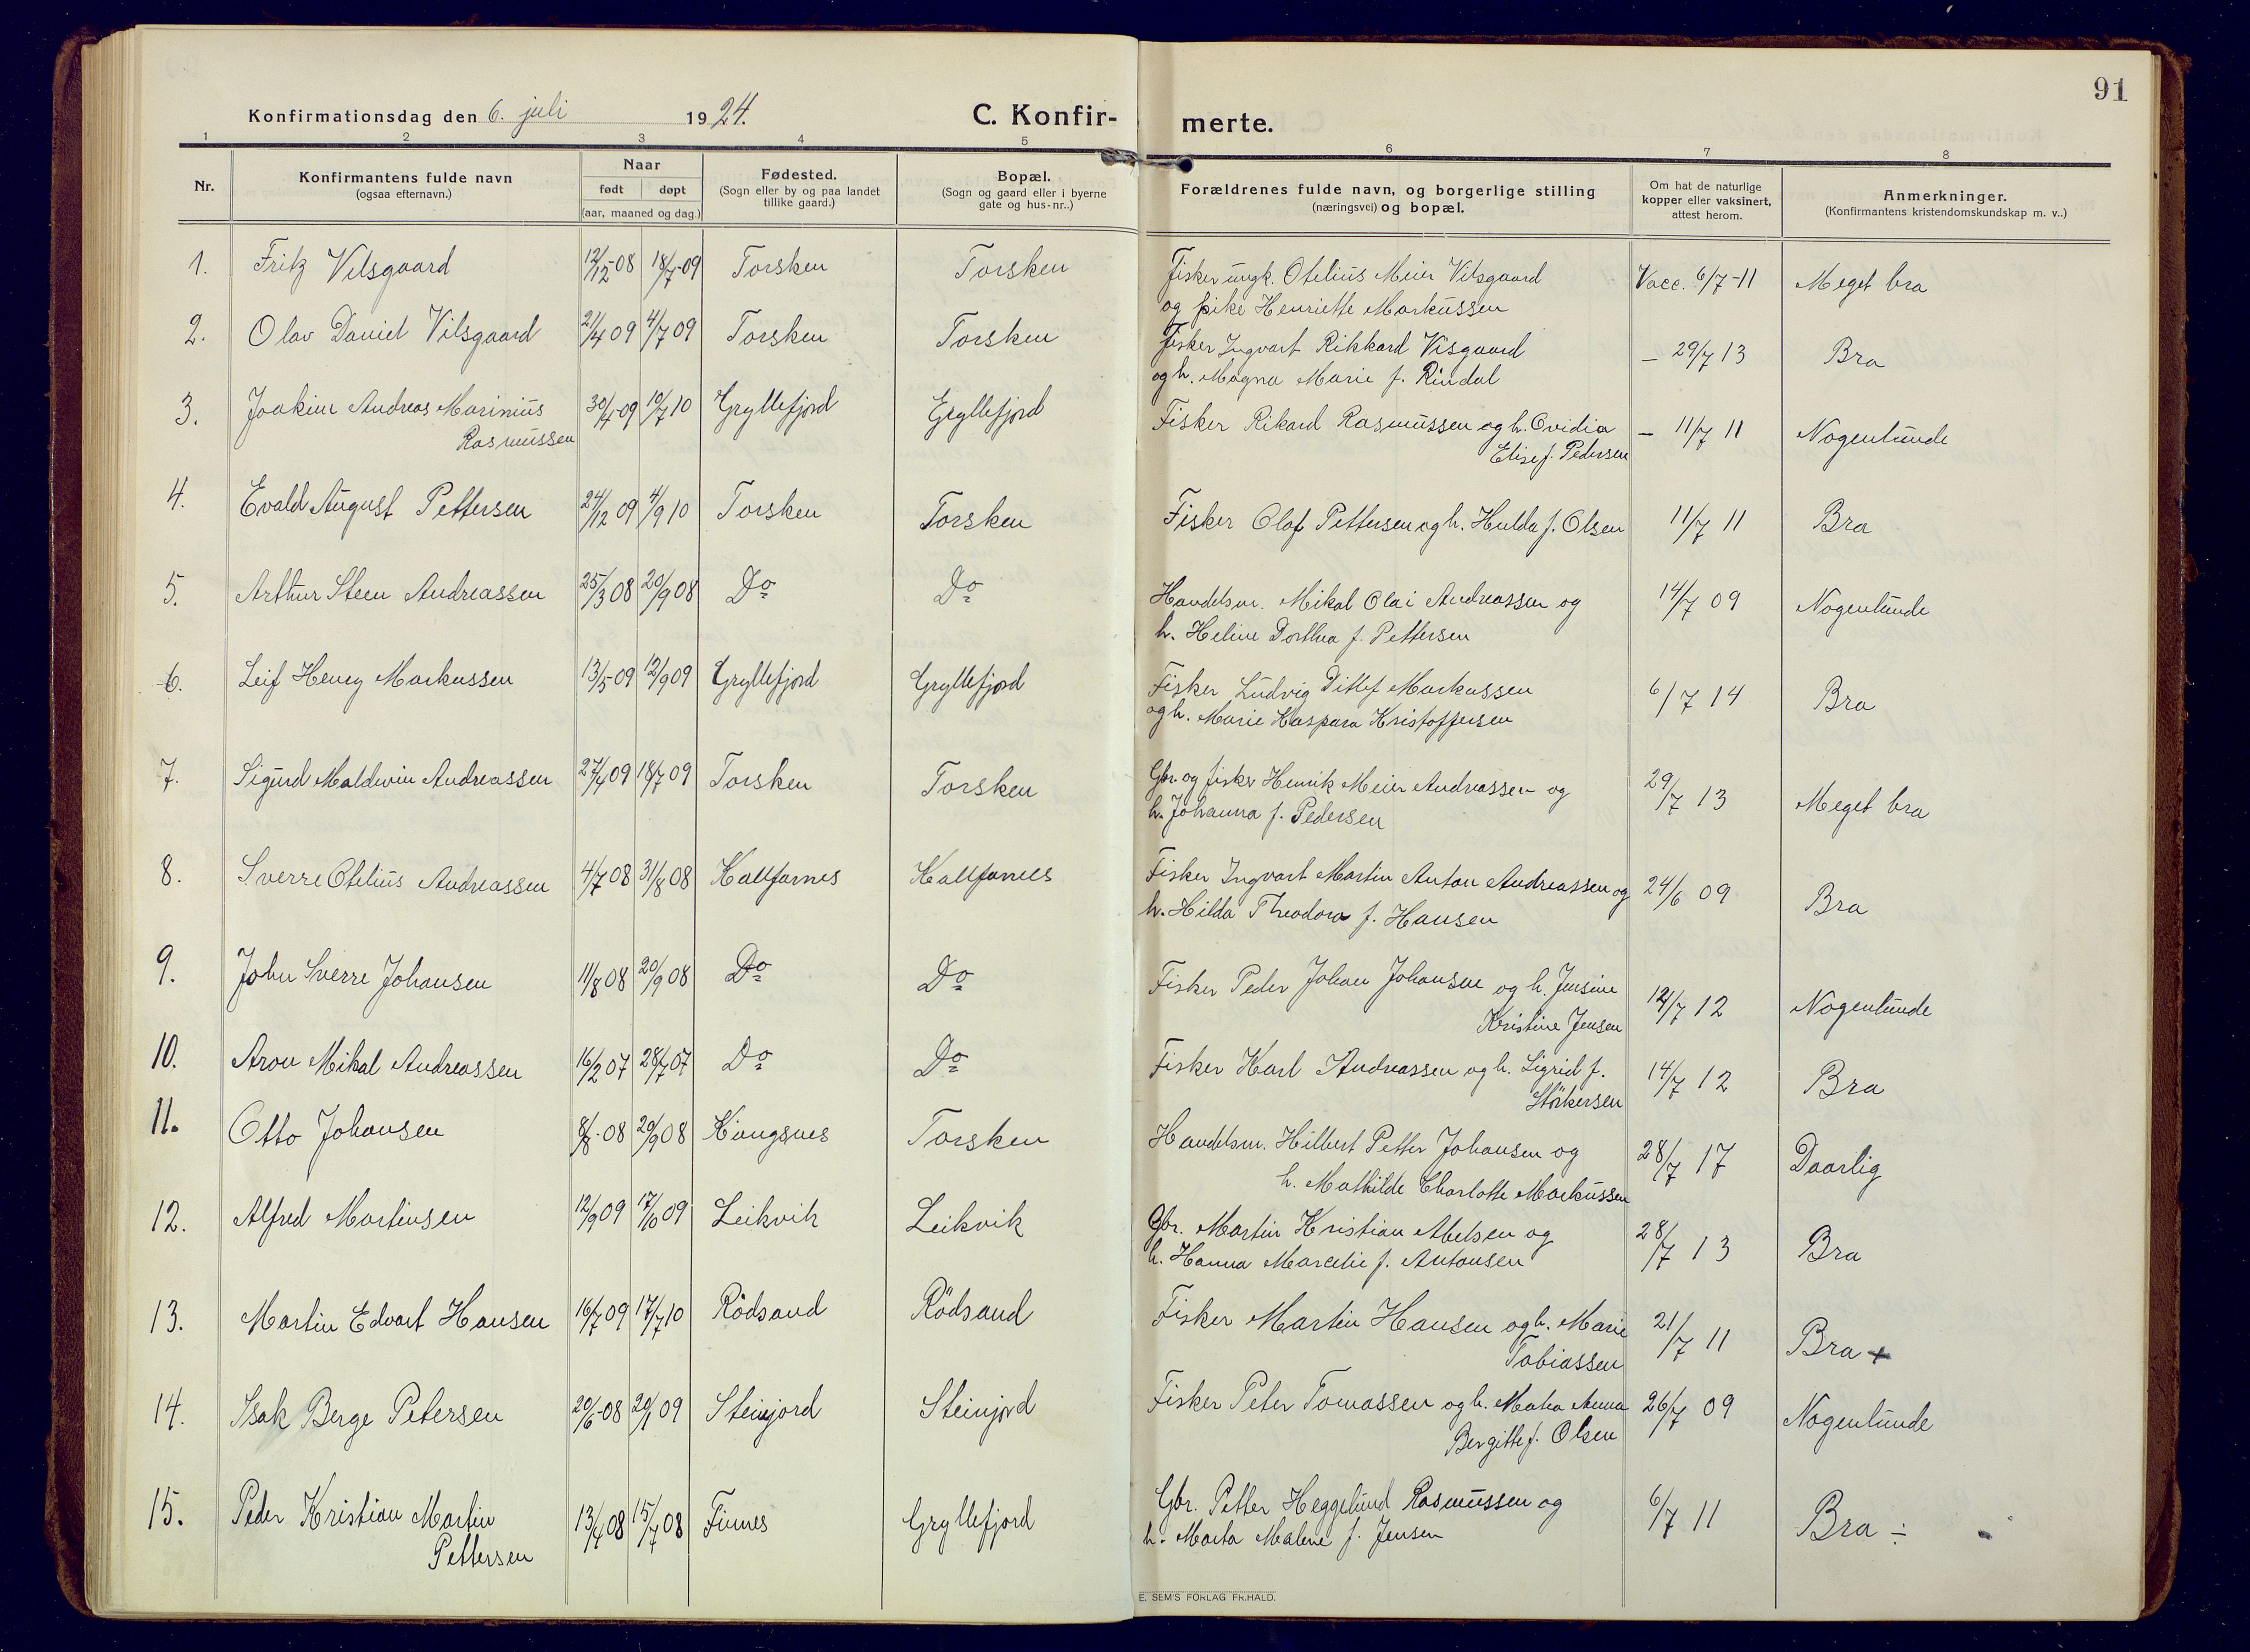 91
Konfirmationsdag den 6. juli 1924.
C. Konfir-
merte.
1 2 3 4 5 6 7 8
Nr.
Konfirmantens fulde navn
(ogsaa efternavn.)
Naar
født døpt
(aar, maaned og dag.)
Fødested.
(Sogn eller by og paa landet
tillike gaard.)
Bopæl.
(Sogn og gaard eller i byerne
gate og hus-nr..)
Forældrenes fulde navn, og borgerlige stilling
(næringsvei) og bopæl.
Om hat de naturlige
kopper eller vaksinert,
attest herom.
Anmerkninger.
(Konfirmantens kristendomskundskap m. v..)
1. Fritz Vilsgaard 12/12-08 18/7-09 Torsken Torsken Fisker ungk. Otelius Meier Vilsgaard Vacc. 6/7-11 Meget bra
og pike Henriette Markussen
2. Olav Daniel Vilsgaard 21/4 09 4/7 09 Torsken Torsken Fisker Ingvart Rikkard Visgaard - 29/7 13 Bra
og h. Magna Marie f. Rindal
3. Joakim Andreas Marinius 30/4-09 10/7 10 Gryllefjord Gryllefjord Fisker Rikard Rasmussen og h. Ovidia - 11/7 11 Nogenlunde
Rasmussen Elise f. Pedersen
4. Evald August Pettersen 24/12 09 4/9 10 Torsken Torsken Fisker Olaf Pettersen og h. Hulda f. Olsen 11/7 11 Bra
5. Arthur Steen Andreassen 25/3 08 20/9 08 Do Do Handelsm. Mikal Olai Andreassen og 14/7 09 Nogenlunde
h. Heline Dorthea f. Pettersen
6. Leif Henry Markussen 13/5-09 12/9 09 Gryllefjord Gryllefjord Fisker Ludvig Ditlef Markussen 6/7 14 Bra
og h. Marie Kaspara Kristoffersen
7. Sigurd Maldwin Andreassen 27/4 09 18/7 09 Torsken Torsken Gbr. og fisker Henrik Meier Andreassen og 29/7 13 Meget bra
h. Johanna f. Pedersen
8. Sverre Otelius Andreassen 4/7 08 31/8 08 Kalfarnes Kalfarnes Fisker Ingvart Martin Anton Andreassen og 24/6 09 Bra
h. Hilda Theodora f. Hansen
9. John Sverre Johansen 11/8 08 20/9 08 Do Do Fisker Peder Johan Johansen og h. Jensine 12/7 12 Nogenlunde
Kristine Jensen
10. Aron Mikal Andreassen 16/2 07 28/7 07 Do Do Fisker Karl Andreassen og h. Sigrid f. 14/7 12 Bra
Störkersen
11. Otto Johansen 8/8-08 20/9 08 Kongsnes Torsken Handelsm. Hilbert Petter Johansen og 28/7 17 Daarlig
h. Mathilde Charlotte Markussen
12. Alfred Martinsen 12/9 09 17/10 09 Leikvik Leikvik Gbr. Martin Kristian Abelsen og 28/7 13 Bra
h. Hanna Marcelie f. Antonsen
13. Martin Edvart Hansen 16/7 09 17/7 10 Rödsand Rödsand Fisker Martin Hansen og h. Marie 21/7 11 Bra +
Tobiassen
14. Isak Berge Petersen 20/6-08 20/1 09 Steinjord Steinjord Fisker Peter Tomassen og h. Anna 26/7 09 Nogenlunde
Bergitte f. Olsen
15. Peder Kristian Martin 13/4 08 15/7 08 Finnes Gryllefjord Gbr. Petter Heggelund Rasmussen og 6/7 11 Bra ÷
Pettersen h. Marta Malene f. Jensen
E. SEM'S FORLAG FR.HALD.